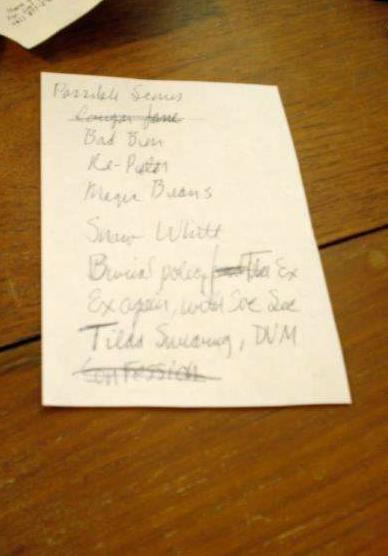 Possible Scenes
Cougar Jane
Bad Bien
Re-
Magic Beans
Snow White
Burial policy / The Ex
Ex again, with
Tilda Swearing, DVM
Confession